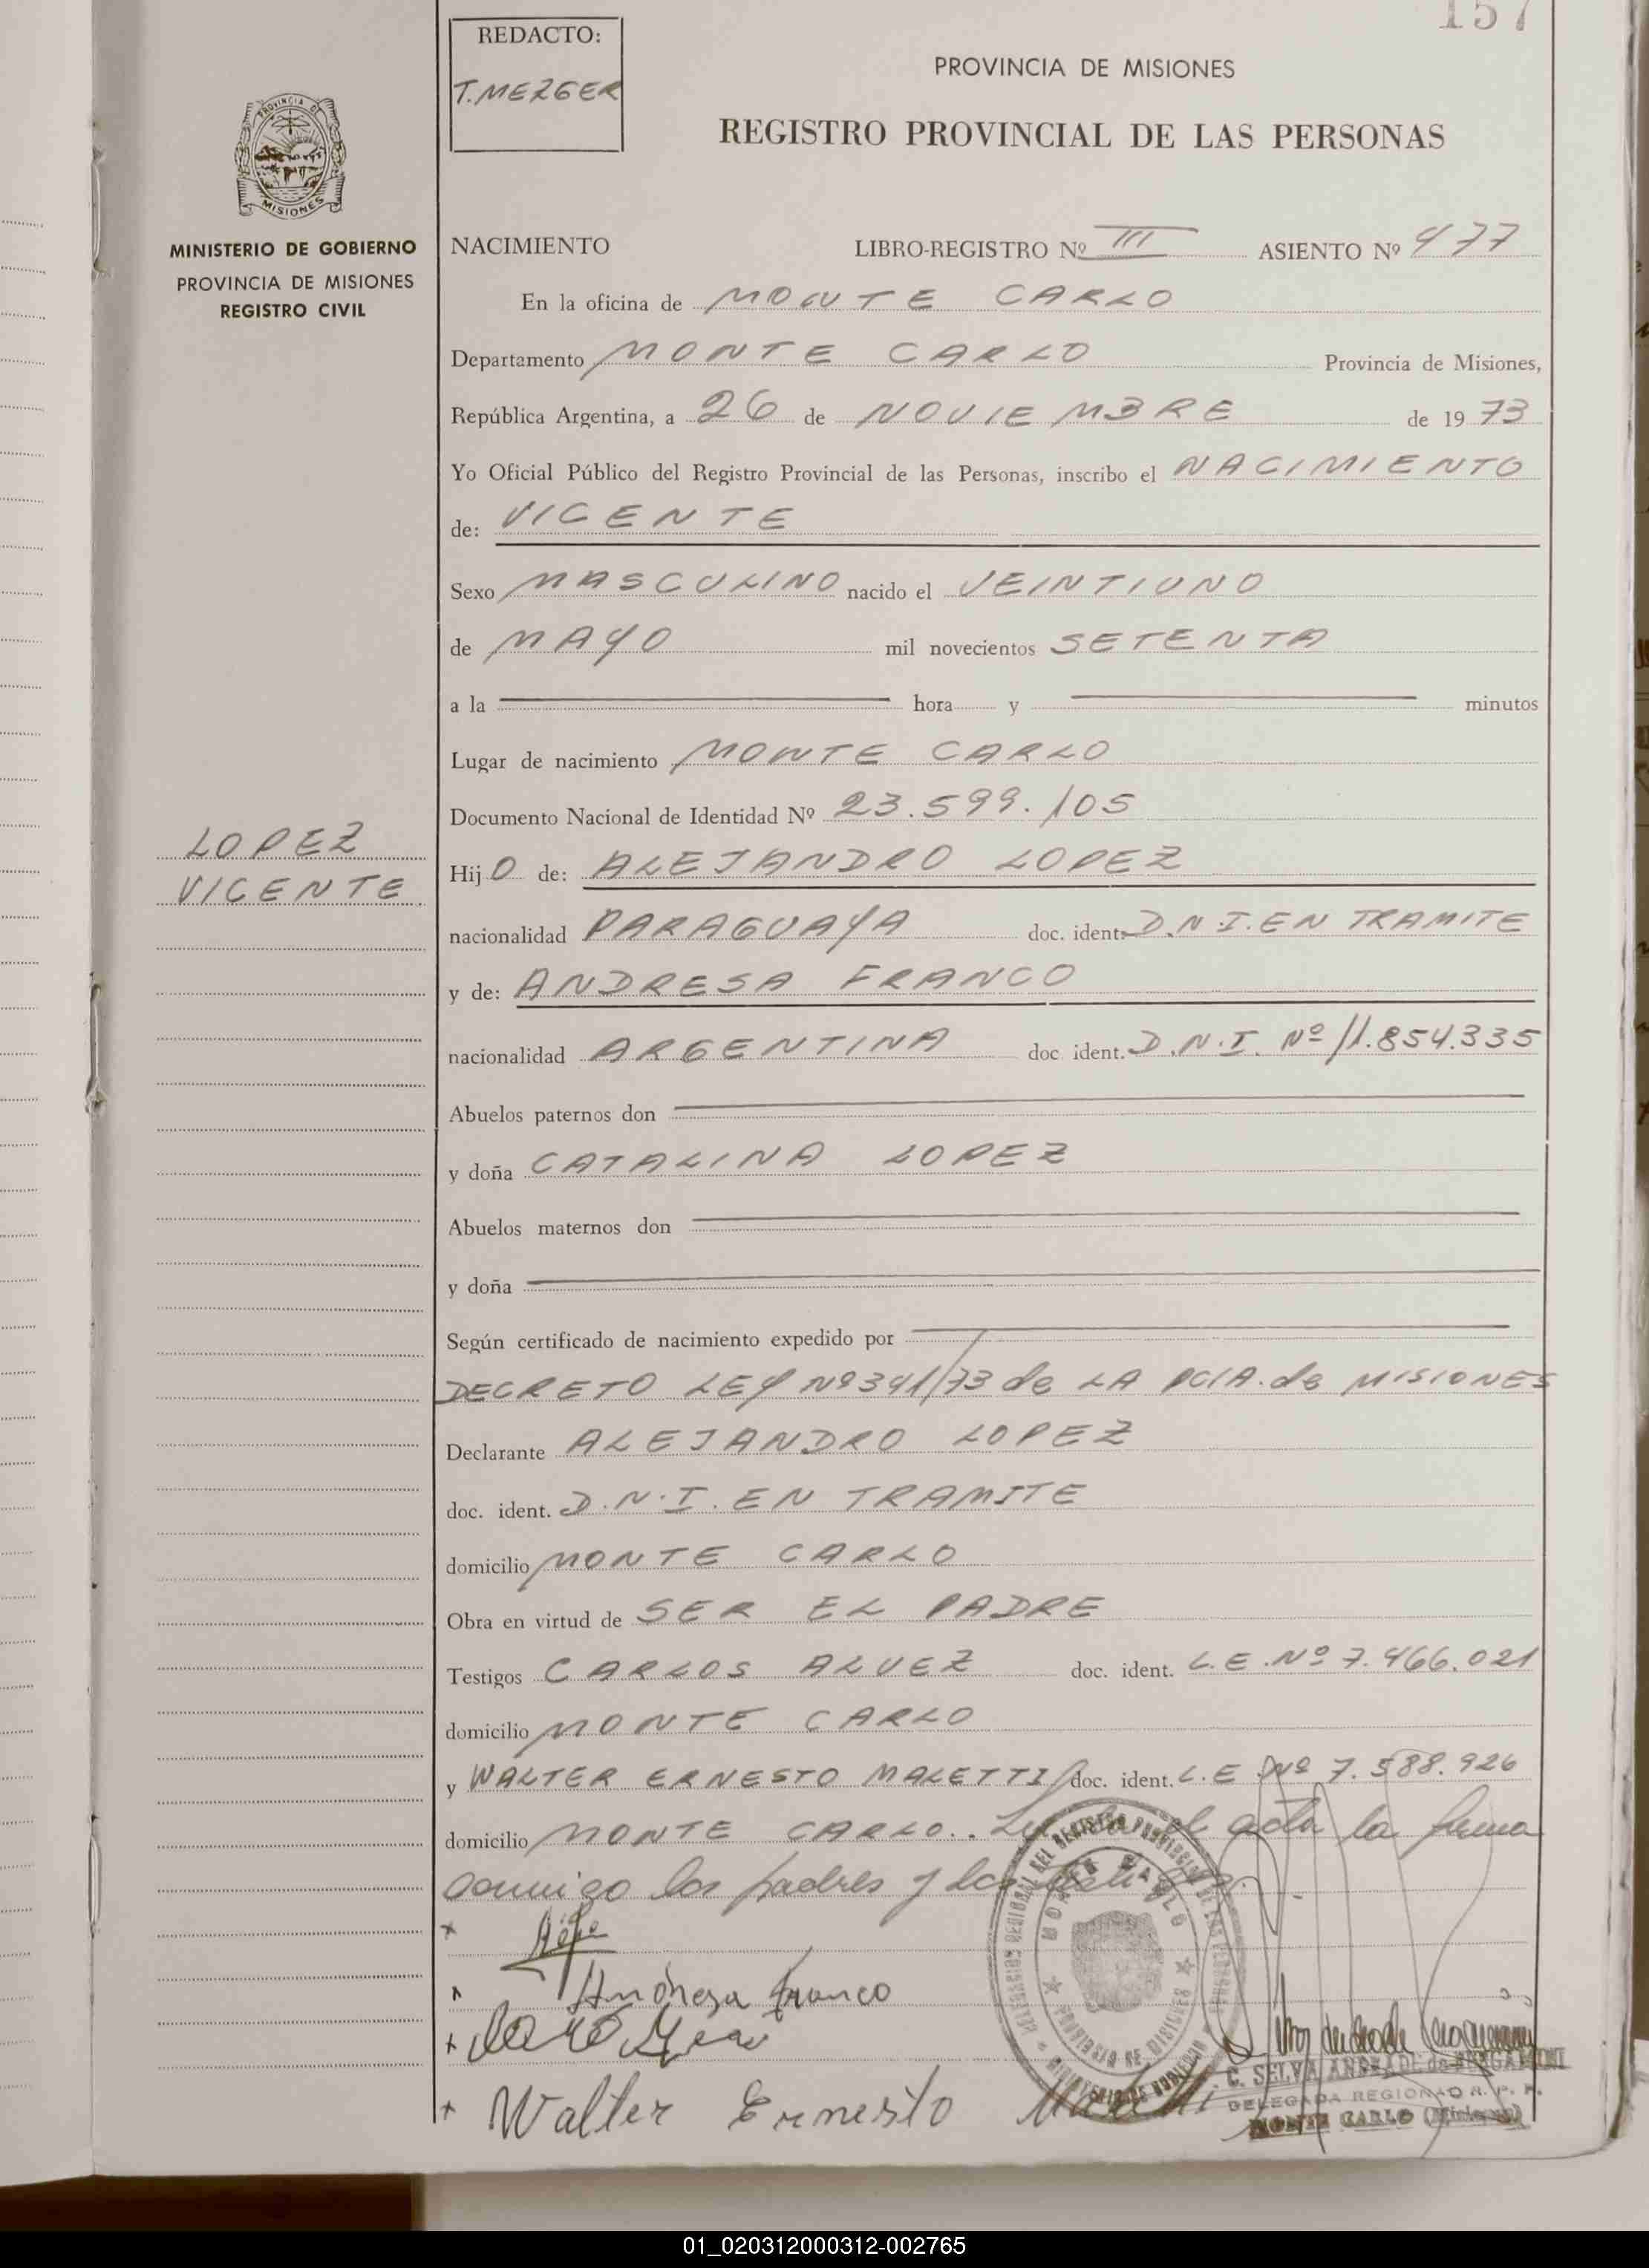 157
REDACTO:
T. MEZGER
PROVINCIA DE MISIONES
REGISTRO PROVINCIAL DE LAS PERSONAS
MISIONES
MINISTERIO DE GOBIERNO
PROVINCIA DE MISIONES
REGISTRO CIVIL
NACIMIENTO LIBRO-REGISTRO Nº III ASIENTO Nº 477
En la oficina de MONTE CARLO
Departamento MONTE CARLO Provincia de Misiones,
República Argentina, a 26 de NOVIEMBRE de 1973
Yo Oficial Público del Registro Provincial de las Personas, inscribo el NACIMIENTO
de: VICENTE
Sexo MASCULINO nacido el VEINTIUNO
de MAYO mil novecientos SETENTA
a la hora y minutos
Lugar de nacimiento MONTE CARLO
Documento Nacional de Identidad Nº 23.599.105
LOPEZ
VICENTE
Hijo de: ALEJANDRO LOPEZ
nacionalidad PARAGUAYA doc. ident. D.N.I. EN TRAMITE
y de: ANDRESA FRANCO
nacionalidad ARGENTINA doc ident. D.N.I. Nº 11.854.335
Abuelos paternos don
y doña CATALINA LOPEZ
Abuelos maternos don
y doña
Según certificado de nacimiento expedido por
DECRETO LEY Nº 341/73 de LA PCIA. de MISIONES
Declarante ALEJANDRO LOPEZ
doc. ident. D.N.I. EN TRAMITE
domicilio MONTE CARLO
Obra en virtud de SER EL PADRE
Testigos CARLOS ALVEZ doc. ident. L.E. Nº 7.466.021
domicilio MONTE CARLO
y WALTER ERNESTO MALETTI doc. ident. L.E. Nº 7.588.926
domicilio MONTE CARLO. el acta la firma
conmigo los padres y los testigos
Andresa Franco
Walter Ernesto Maletti
C. SELVA ANDRADE de
DELEGADA REGIONAL D R. P. P.
MONTE CARLO (Misiones)
01_020312000312-002765